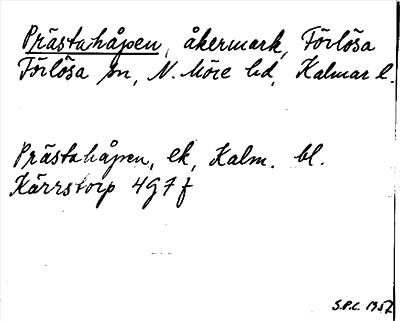 Prästahåpen, åkermark, Förlösa
Förlösa sn, N. Möre hd, Kalmar l.
Prästahåpen, ek, Kalm. bl.
Kärrstorp 4G7f
S.P.L. 1957